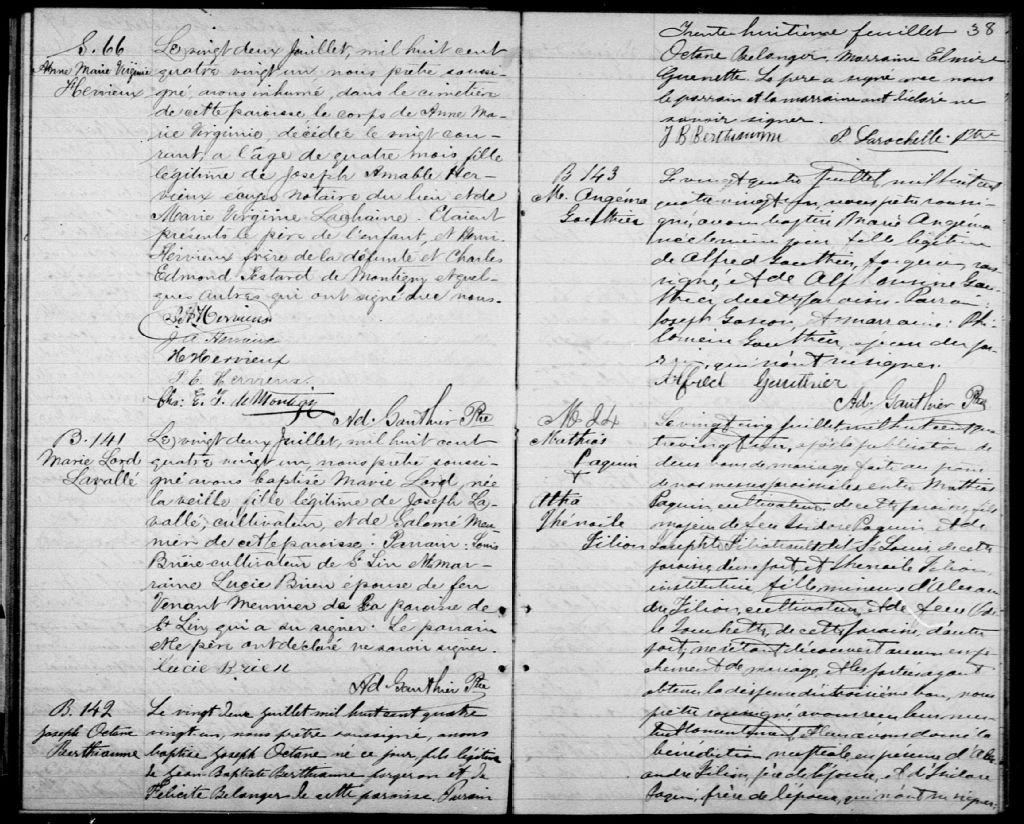 S. 66
Anne Marie Virginie
Hervieux
Le vingt deux Juillet, mil huit cent
quatre vingt un nous prêtre soussi-
gné avons inhumé, dans le cimetière
de cette paroisse le corps de Anne Ma-
rie Virginie, décédée le vingt cou-
rant, a l'âge de quatre mois fille
légitime de Joseph Amable Her-
vieux écuyer Notaire du lieu et de
Marie Virginie. Etaient
présents le père de l'enfant, et Henri
Hervieux frère de la défunte et Charles
Edmond Testard de Montigny et quel-
ques autres qui ont signé avec nous.
Hervieux
J A Hervieux
H Hervieux
Hervieux
Chs: E. T. de Montigny
Ad. Gauthier Ptre
B. 141
Marie Lord
Lavallé
Le vingt deux Juillet, mil huit cent
quatre vingt un, nous prêtre soussi-
gné avons baptisé Marie Lord, née
la veille fille légitime de Joseph La-
vallé, cultivateur, et de Salomé Meu-
nier de cette paroisse. Parrain: Louis
Brière cultivateur de St Lin Mar-
raine Lucie Brien épouse de feu
Venant Meunier de la paroisse de
St Lin qui a su signer. Le parrain
et le père ont declaré ne savoir signer.
Lucie Brien
Ad. Gauthier Ptre
B. 142
Joseph Octave
Berthiaume
Le vingt deux juillet mil huit cent quatre
vingt un, nous prêtre soussigné, avons
baptisé Joseph Octave né ce jour, fils légitime
de Jean Baptiste Berthiaume forgeron et de
Félicité Belanger de cette paroisse. Parain
Trente huitième feuillet 38
Octave Belanger, Marraine Elmire
Guenette. Le père a signé avec nous
le parrain et la marraine ont déclaré ne
savoir signer.
J B Berthiaume P. Larochelle Ptre
B 143
M. Angéma
Gauthier
Le vingt quatre juillet, mil huit cent
quatre vingt un, nous prêtre soussi-
gné, avons baptisé Marie Angéma
née le même jour fille légitime
de Alfred Gauthier, forgeron, sous-
signé, et de Gau-
thier de cette paroisse. Parrain:
Joseph Gascon, et marraine: Phi-
lomène Gauthier,
qui n'ont su signer.
Alfred Gauthier
Ad. Gauthier Ptre
M 24
Mathias
Paquin
+
Filion
Le vingt cinq juillet mil huit cent qua-
tre vingt un, après la publication de
deux bans de mariage fait au prône
de nos messes paroissiales entre Mathias
Paquin, cultivateur, de cette paroisse, fils
majeur de feu Isidore Paquin et de
Josephte Filiatrault dit St Louis, de cette
paroisse, d'une part, et Filion,
institutrice, fille mineure d'Alexan-
dre Filion, cultivateur et de feue
Touchette, de cette paroisse, d'autre
part, ne s'étant découvert aucun empê-
chement de mariage, et les parties ayant
obtenu la dispense du troisième ban, nous
prêtre soussigné avons reçu leur mu-
tuel consentement, et leur avons donné la
bénédiction nuptiale en présence d'Alex-
andre Filion, père de l'épouse, et d'Isidore
Paquin, frère de l'époux, qui n'ont su signer.